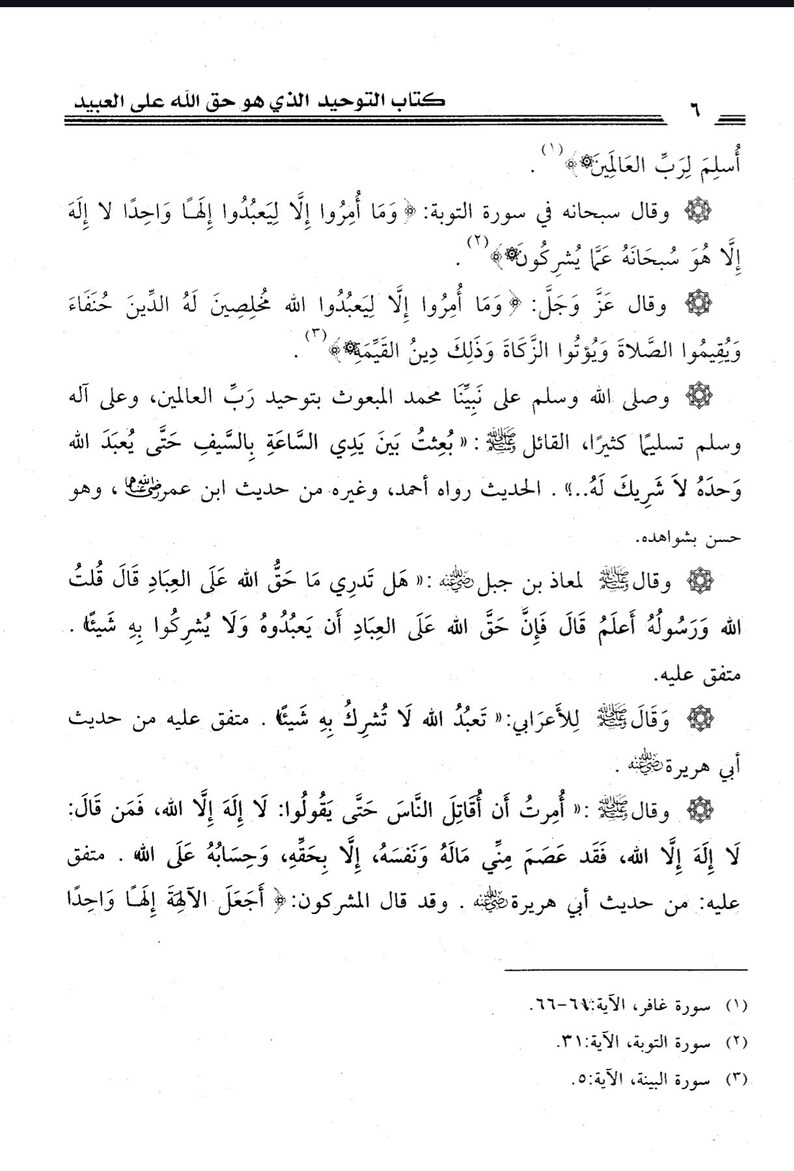 ٦ كتاب التوحيد الذي هو حق الله على العبيد
أُسلِمَ لِرَبِّ العَالَمِينَ﴾(١) .
وقال سبحانه في سورة التوبة: ﴿وَمَا أُمِرُوا إِلَّا لِيَعبُدُوا إِلَهًا وَاحِدًا لا إِلَهَ
إِلَّا هُوَ سُبحَانَهُ عَمَّا يُشرِكُونَ﴾(٢) .
وقال عَزَّ وَجَلَّ: ﴿وَمَا أُمِرُوا إِلَّا لِيَعبُدُوا الله مُخلِصِينَ لَهُ الدِّينَ حُنَفَاءَ
وَيُقِيمُوا الصَّلاةَ وَيُؤتُوا الزَّكَاةَ وَذَلِكَ دِينُ القَيِّمَةِ﴾(٣) .
وصلى الله وسلم على نَبِيِّنَا محمد المبعوث بتوحيد رَبِّ العالمين، وعلى آله
وسلم تسليمًا كثيرًا، القائل ﷺ : « بُعِثتُ بَينَ يَدِي السَّاعَةِ بِالسَّيفِ حَتَّى يُعبَدَ الله
وَحدَهُ لاَ شَرِيكَ لَهُ..» . الحديث رواه أحمد، وغيره من حديث ابن عمر رضي الله عنهما ، وهو
حسن بشواهده.
وقال ﷺ لمعاذ بن جبل رضي الله عنه :« هَل تَدرِي مَا حَقُّ الله عَلَى العِبَادِ قَالَ قُلتُ
الله وَرَسُولُهُ أَعلَمُ قَالَ فَإِنَّ حَقَّ الله عَلَى العِبَادِ أَن يَعبُدُوهُ وَلَا يُشرِكُوا بِهِ شَيئًا» .
متفق عليه.
وَقَالَ ﷺ لِلأَعرَابي:« تَعبُدُ الله لَا تُشرِكُ بِهِ شَيئًا» . متفق عليه من حديث
أبي هريرة رضي الله عنه .
وقال ﷺ :« أُمِرتُ أَن أُقَاتِلَ النَّاسَ حَتَّى يَقُولُوا: لَا إِلَهَ إِلَّا الله، فَمَن قَالَ:
لَا إِلَهَ إِلَّا الله، فَقَد عَصَمَ مِنِّي مَالَهُ وَنَفسَهُ، إِلَّا بِحَقِّهِ، وَحِسَابُهُ عَلَى الله» . متفق
عليه: من حديث أبي هريرة رضي الله عنه . وقد قال المشركون:﴿أَجَعَلَ الآلِهَةَ إِلَهًا وَاحِدًا
(١) سورة غافر، الآية:٦٨-٦٦.
(٢) سورة التوبة، الآية:٣١.
(٣) سورة البينة، الآية:٥.